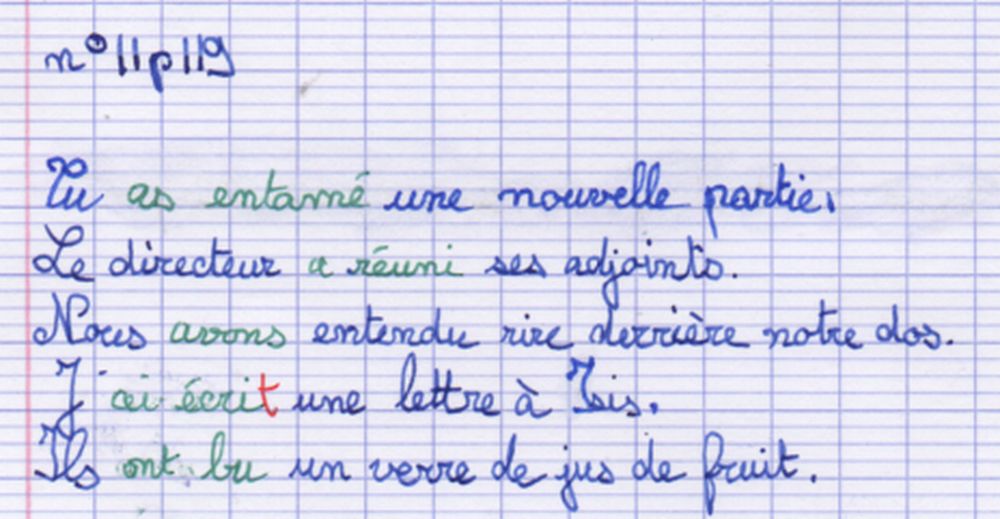 n° 11 p 119
Tu as entamé une nouvelle partie.
Le directeur a réuni ses adjoints.
Nous avons entendu rire derrière notre dos.
J'ai écrit une lettre à Isis.
Ils ont bu un verre de jus de fruit.